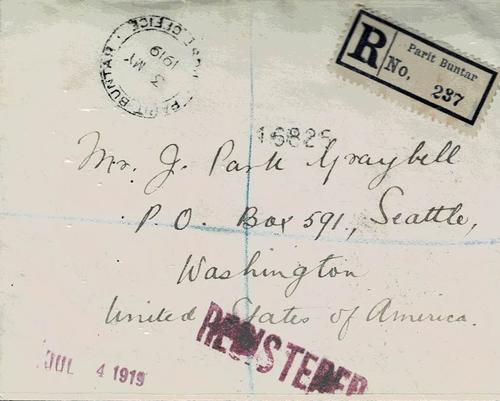 PARIT BUNTAR
3 MY
1919
R
Parit Buntar
No. 237
Mr. J. Park Graybell
P.O. Box 591, Seattle,
Washington
United States of America.
REGISTERED
JUL 4 1919